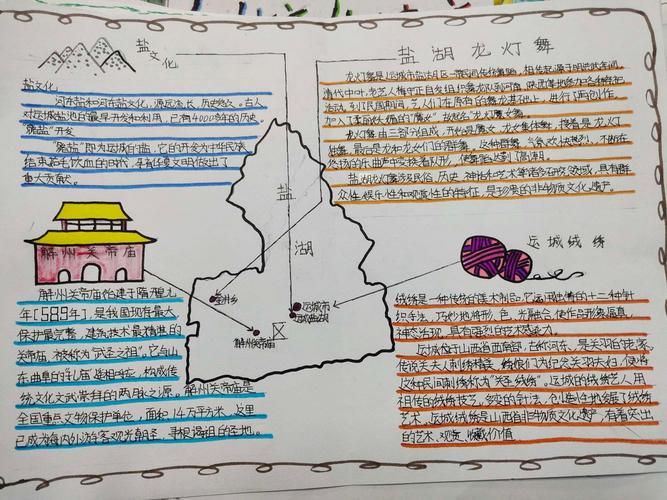 盐文化
盐文化
河东盐和河东盐文化，源远流长，历史悠久。古人
对运城盐池的最早开发和利用，已有4000多年的历史。
开发
即为运城的盐，它的开发为中华民族
结束茹毛饮血的时代，寻有华夏文明做出了
重大贡献。
盐湖龙灯舞
龙灯舞是运城市盐湖区一带民间传统舞蹈，相传起源于明洪武年间。
清代中叶，老艺人梅中正自发组织舞龙队到河南、陕西等地参加各种祭祀
活动，到了民国期间，艺人们在原有的舞龙基础上，进行了再创作，
加入了柔丽妖娆的“魔女”故起名“龙灯魔女舞”
龙灯舞由三部分组成，开始是魔女、龙女集体舞，接着是龙灯
舞，最后是龙和龙女们的混群舞，气氛欢快热烈，不断在
的乐曲声中变换着队形，使舞蹈达到了高潮。
盐湖龙灯舞涉及民俗、历史、神话和艺术等诸多研究领域，具有群
众性、娱乐性和观赏性的特征，是珍贵的非物质文化遗产。
盐
湖
解州关帝庙
解州关帝庙始建于隋开皇九
年[589年]，是我国现存最大、
保护最完整、建筑技术最精进的
关帝庙，被称为“武圣之祖”。它与山
东曲阜的“孔庙”遥相呼应，构成传
统文化文武崇拜的两大脉之源。解州关帝庙是
全国重点文物保护单位，面积14万平方米，这里
已成为海内外游客观光朝拜、寻根谒祖的圣地。
运城市
解州关帝庙
区
运城绒绣
绒绣是一种传统的美术制品，它运用独特的十二种针
织手法，巧妙地将形、色、光融合，使作品形象逼真，
神态活现，具有强烈的艺术感染力。
运城位于山西省西南部，古称河东，是关羽的故乡。
传说关夫人刺绣精美，绣娘们为纪念关羽夫妇，便将
这种民间刺绣称为“关氏绒绣”，运城的绒绣艺人用
相传的绒绣技艺，多变的针法，创造性地发展了绒绣
艺术。运城绒绣是山西省非物质文化遗产，有着突出
的艺术、观赏、收藏价值。